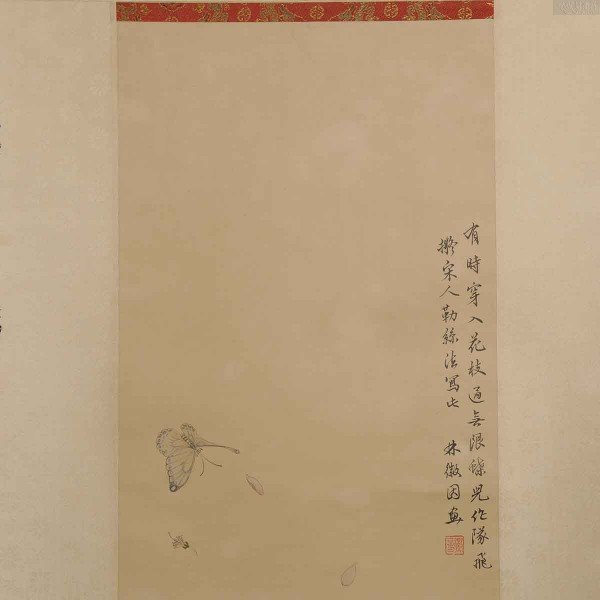 有時穿入花枝過無限蝶兒作隊飛
擬宋人勒絲法寫此
林徽因畫